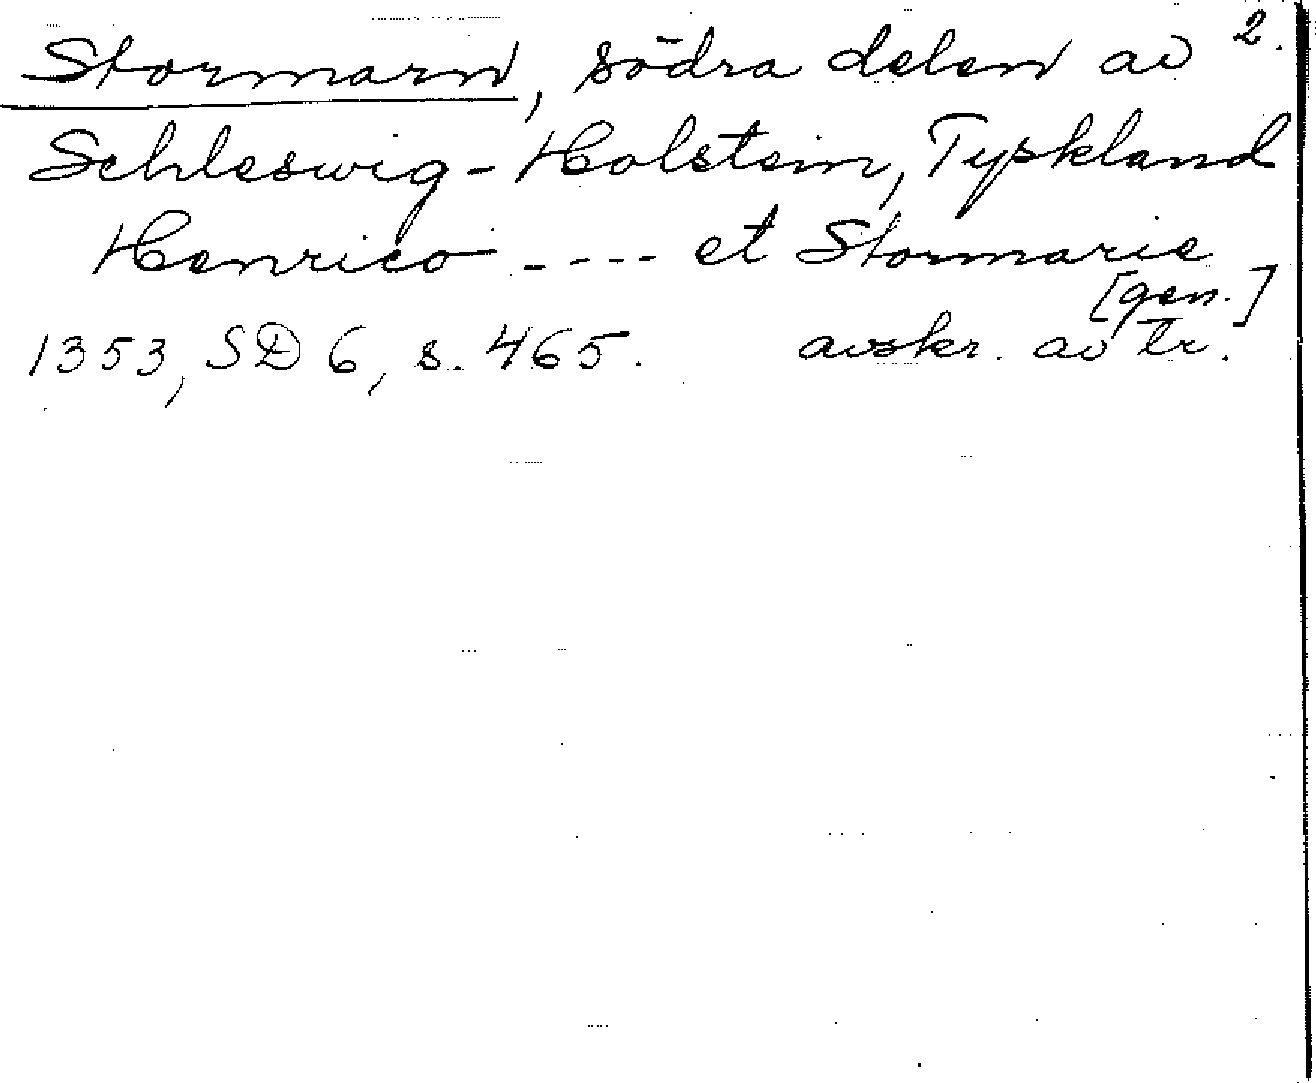 2.
Stormarn, södra delen av
Schleswig-Holstein, Tyskland
Henrico ---- et Stormarie
[gen.]
1353, SD 6, s. 465. avskr. av tr.